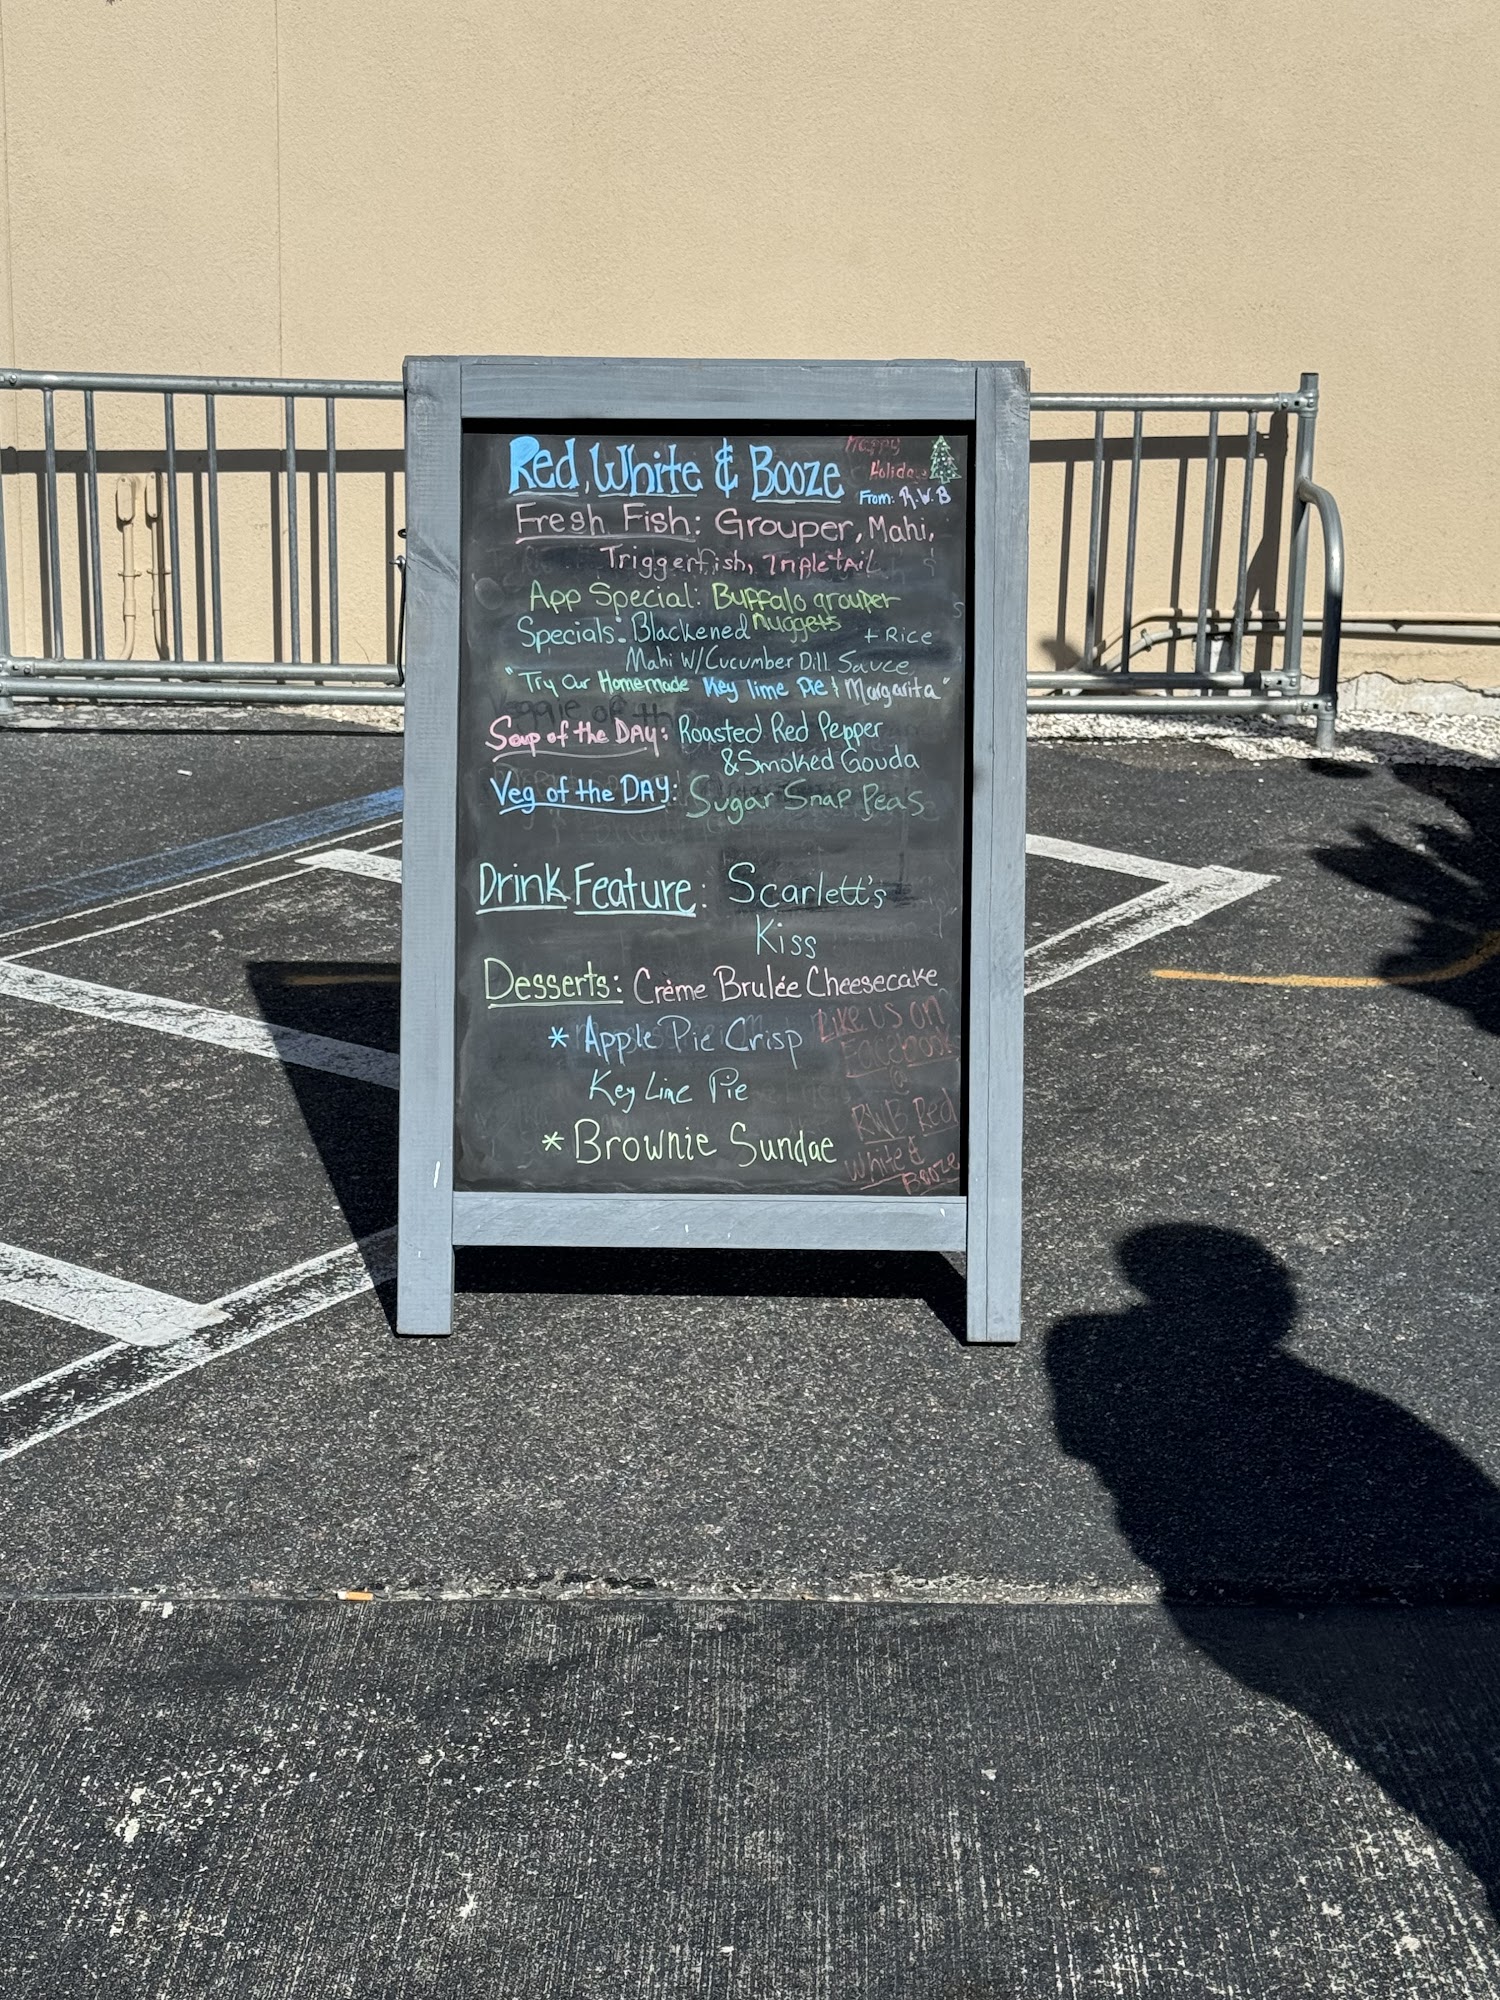 Red, White & Booze
Happy
Holidays
From: R.W.B
Fresh Fish: Grouper, Mahi,
Triggerfish, Tripletail
App Special: Buffalo grouper
nuggets
Specials: Blackened + Rice
Mahi W/Cucumber Dill Sauce
"Try Our Homemade Key lime Pie & Margarita"
Soup of the DAY: Roasted Red Pepper
& Smoked Gouda
Veg of the DAY: Sugar Snap Peas
Drink Feature: Scarlett's
Kiss
Desserts: Crème Brulée Cheesecake
* Apple Pie Crisp
Key Lime Pie
* Brownie Sundae
Like us on
Facebook
@
RWB Red
White &
Booze